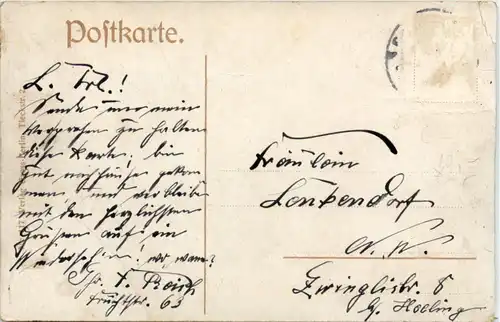 Postkarte.
L. Frl.!
Sende um mein
Versprechen zu halten
diese Karte, bin
gut nachhause gekom
men, und verbleibe
mit den herzlichsten
Grüßen auf ein
Wiedersehn! wo, wann?
Ihr F.
Fruchtstr. 63
Fräulein
Lonkendorf
N. W.
Zwinglistr. 8
b/